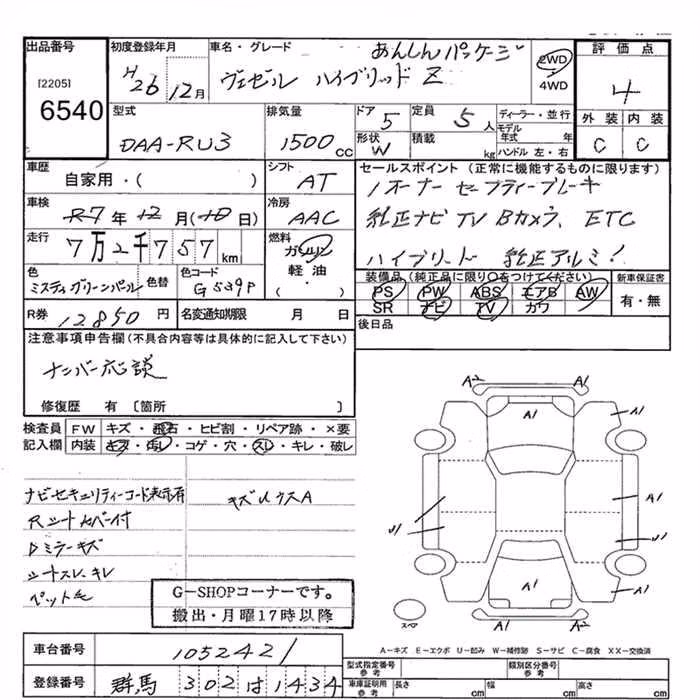 出品番号
[2205]
6540
初度登録年月
H26 12月
車名・グレード
あんしんパッケージ
ヴェゼル ハイブリッド Z
2WD
4WD
評価点
4
外装 内装
C C
型式
DAA-RU3
排気量
1500cc
ドア
5
定員
5人
形状
W
積載
kg
ディーラー・並行
モデル年式 年
ハンドル 左・右
車歴
自家用・( )
シフト
AT
車検
R7年12月(10日)
冷房
AAC
走行
7万2千757km
燃料
ガソリン
軽油・
( )
セールスポイント(正常に機能するものに限ります)
1オーナー セーフティーブレーキ
純正ナビ TV Bカメラ、ETC
ハイブリード 純正アルミ!
色
ミスティグリーンパール
色替
色コード
G539P
装備品(純正品に限り○をつけてください)
PS PW ABS エアB AW
SR ナビ TV カワ
新車保証書
有・無
R券
12,850円
名変通知期限 月 日
後日品
注意事項申告欄(不具合内容等は具体的に記入して下さい)
ナンバー応談
修復歴 有 〔箇所 〕
検査員記入欄
FW キズ・飛石・ヒビ割・リペア跡・×要
内装 キズ・汚レ・コゲ・穴・スレ・キレ・破レ
ナビセキュリティーコード表示有
キズ Uウス A
Rシートカバー付
Dミラーキズ
シートスレ、キレ
ペット毛
G-SHOPコーナーです。
搬出・月曜17時以降
A2 A1
A1 A1
A1
U1 U1
A1
A1 A1
A2
スペア
A-キズ E-エクボ U-凹み W-補修跡 S-サビ C-腐食 XX-交換済
車台番号
1052421
登録番号
群馬 302 は 1434
型式指定番号
参考
類別区分番号
参考
車庫証明用
参考
長さ cm 幅 cm 高さ cm